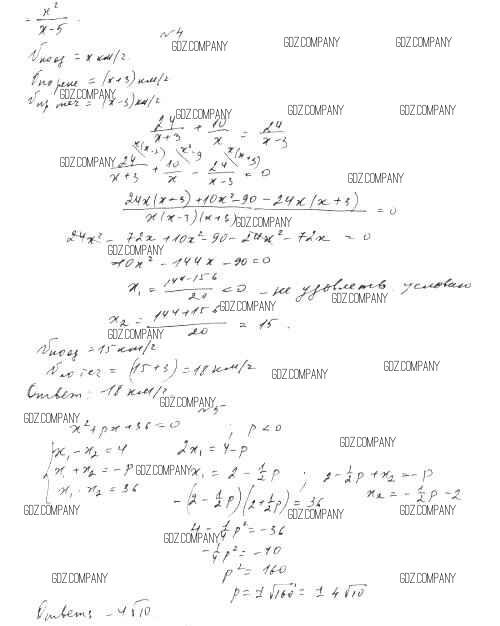 = x²/(x-5).
№4
GDZ.COMPANY GDZ.COMPANY GDZ.COMPANY
Vпоез = x км/ч.
= (x+3) км/ч
GDZ.COMPANY
= (x-3) км/ч
GDZ.COMPANY GDZ.COMPANY GDZ.COMPANY
24/(x+3) + 10/x = 24/(x-3)
x(x-3) x²-9 x(x+3)
GDZ.COMPANY
24/(x+3) + 10/x - 24/(x-3) = 0
GDZ.COMPANY
(24x(x-3)+10x²-90-24x(x+3))/(x(x-3)(x+3)) = 0
GDZ.COMPANY
24x² - 72x+10x²-90-24x²-72x = 0
GDZ.COMPANY
10x²-144x-90=0
x₁ = (144-156)/20 <0 - не удовлетв. условию
GDZ.COMPANY
GDZ.COMPANY
x₂ = (144+156)/20 = 15.
GDZ.COMPANY
Vпоез = 15 км/ч
= (15+3) = 18 км/ч
GDZ.COMPANY GDZ.COMPANY
Ответ: 18 км/ч
GDZ.COMPANY
№5
GDZ.COMPANY
x²+px+36=0 ; p<0
x₁-x₂=4 2x₁=4-p
GDZ.COMPANY
x₁+x₂=-p x₁=2-½p ; 2-½p+x₂=-p
GDZ.COMPANY
x₁·x₂=36 x₂=-½p-2
-(2-½p)(2+½p)=36
GDZ.COMPANY GDZ.COMPANY GDZ.COMPANY
4-¼p²=-36
GDZ.COMPANY
-¼p²=-40
p²=160
GDZ.COMPANY GDZ.COMPANY
p=±√160=±4√10
Ответ: -4√10